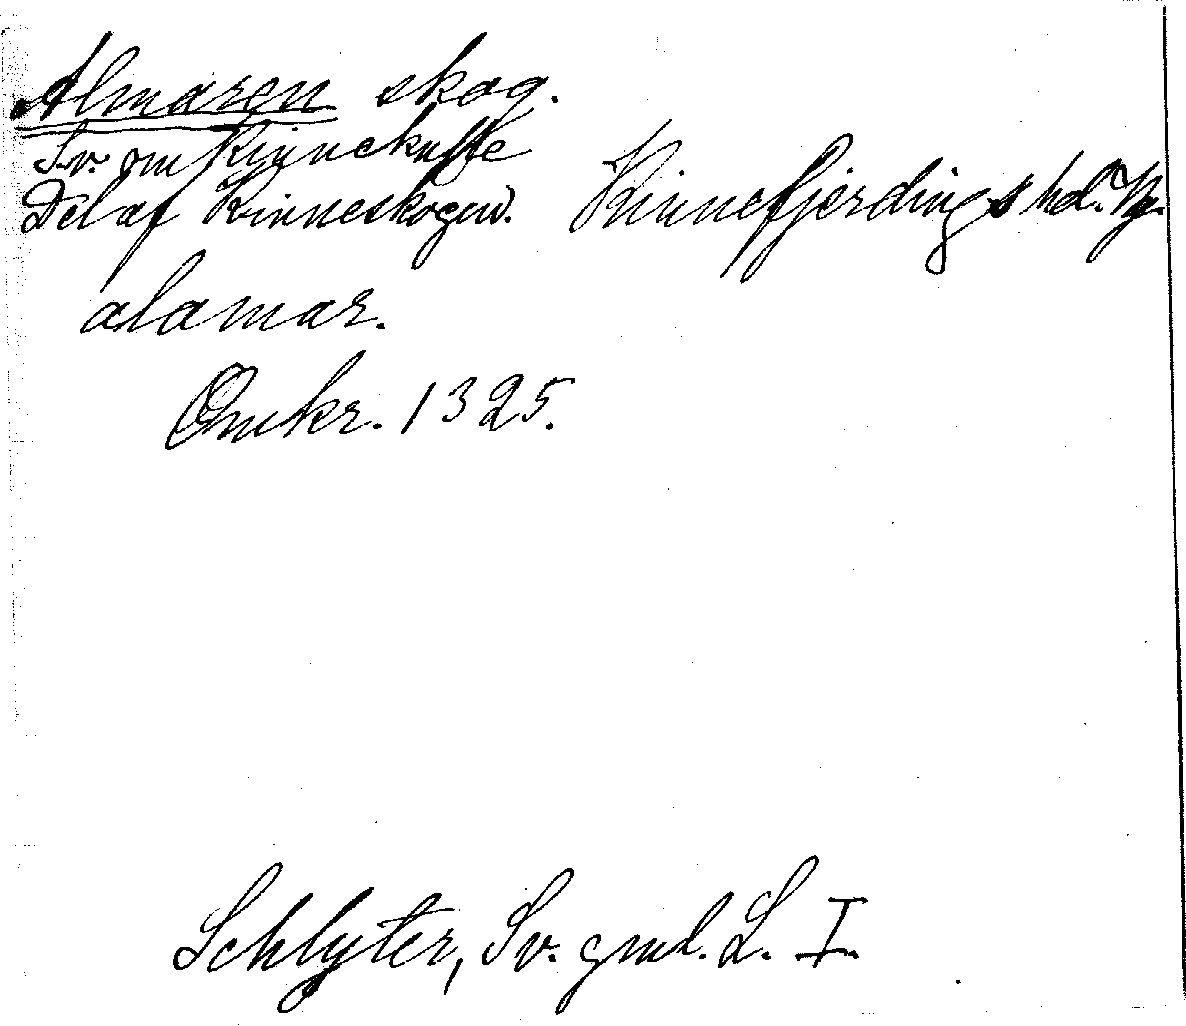 Almaren skog.
Sv. om Kinnekulle
Del af Kinneskogen. Kinnefjerdings hd. Vg.
alamar.
Omkr. 1325.
Schlyter, Sv. gml. L. I.